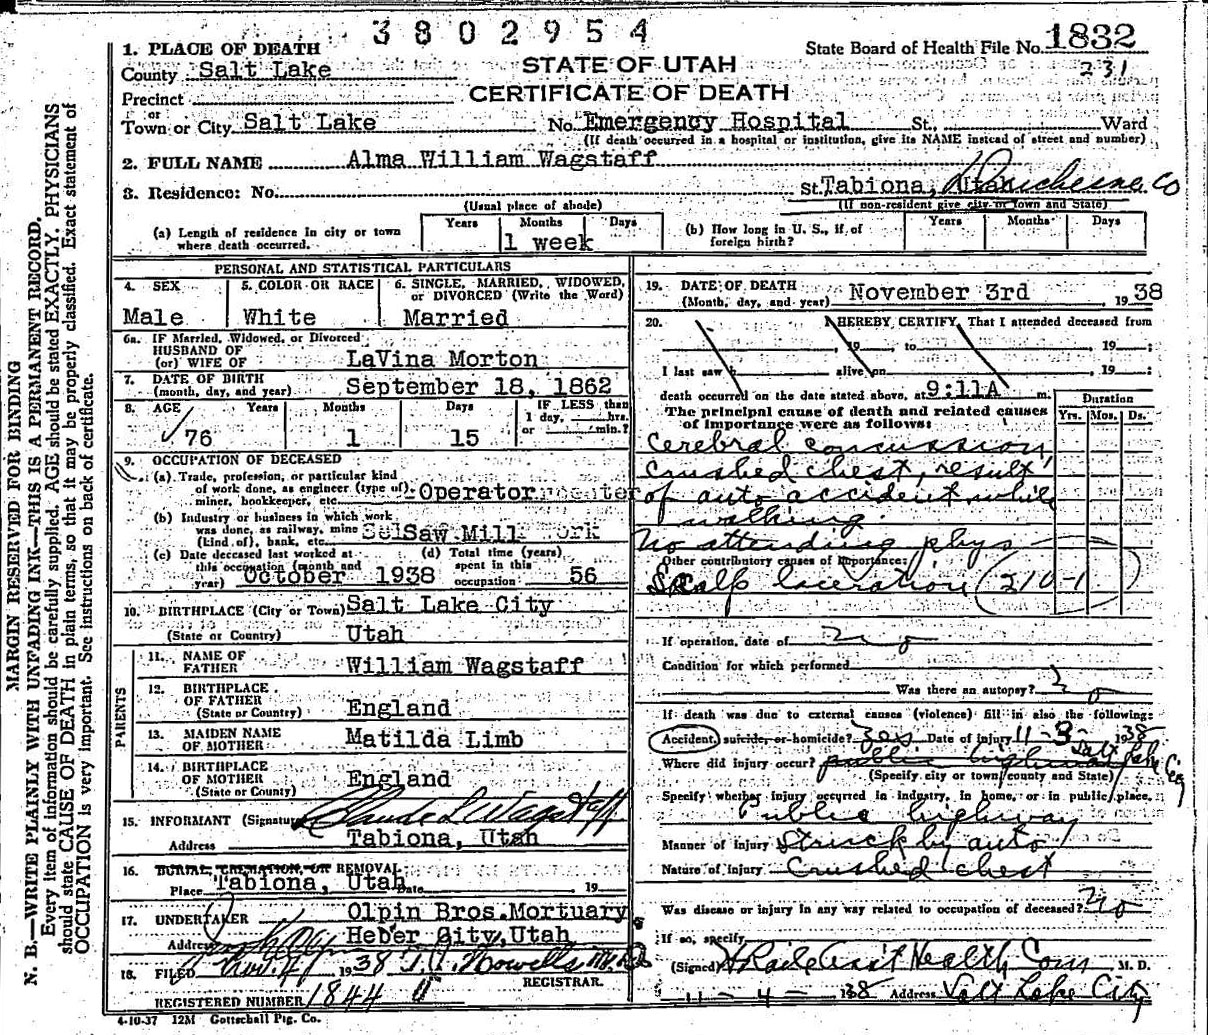 3802954
State Board of Health File No. 1832
231
STATE OF UTAH
CERTIFICATE OF DEATH
1. PLACE OF DEATH
County Salt Lake
Precinct
or
Town or City Salt Lake No. Emergency Hospital St., Ward
(If death occurred in a hospital or institution, give its NAME instead of street and number)
2. FULL NAME Alma William Wagstaff
3. Residence: No. St. Tabiona, Utah Duchesne Co
(Usual place of abode) (If non-resident give city or town and State)
(a) Length of residence in city or town where death occurred. Years Months Days 1 week
(b) How long in U. S., if of foreign birth? Years Months Days
PERSONAL AND STATISTICAL PARTICULARS
4. SEX Male
5. COLOR OR RACE White
6. SINGLE, MARRIED, WIDOWED, or DIVORCED (Write the Word) Married
6a. IF Married, Widowed, or Divorced
HUSBAND OF
(or) WIFE OF LaVina Morton
7. DATE OF BIRTH
(month, day, and year) September 18, 1862
8. AGE Years Months Days IF LESS than
1 day, hrs.
or min.?
76 1 15
9. OCCUPATION OF DECEASED
(a) Trade, profession, or particular kind
of work done, as engineer (type of)
miner, bookkeeper, etc. Operator
(b) Industry or business in which work
was done, as railway, mine
(kind of), bank, etc. Saw Mill
(c) Date deceased last worked at
this occupation (month and
year) October 1938
(d) Total time (years)
spent in this
occupation 56
10. BIRTHPLACE (City or Town) Salt Lake City
(State or Country) Utah
PARENTS
11. NAME OF
FATHER William Wagstaff
12. BIRTHPLACE
OF FATHER
(State or Country) England
13. MAIDEN NAME
OF MOTHER Matilda Limb
14. BIRTHPLACE
OF MOTHER
(State or Country) England
15. INFORMANT (Signature) Wagstaff
Address Tabiona, Utah
16. BURIAL, CREMATION, OR REMOVAL
Place Tabiona, Utah Date 19
17. UNDERTAKER Olpin Bros. Mortuary
Address Heber City, Utah
18. FILED Nov. 4, 1938
REGISTRAR.
REGISTERED NUMBER 1844
4-10-37 12M Gottschall Ptg. Co.
19. DATE OF DEATH
(Month, day, and year) November 3rd, 1938
20. I HEREBY CERTIFY, That I attended deceased from
19 to 19 ;
I last saw h alive on 19 ;
death occurred on the date stated above, at 9:11A m.
The principal cause of death and related causes
of importance were as follows:
Duration
Yrs. Mos. Ds.
Cerebral concussion,
crushed chest, result
of auto accident while
walking.
No attending phys
Other contributory causes of importance:
Scalp laceration (210-1)
If operation, date of no
Condition for which performed
Was there an autopsy? no
If death was due to external causes (violence) fill in also the following:
Accident, suicide, or homicide? yes Date of injury 11-3-1938
Where did injury occur? public highway Salt Lake City
(Specify city or town, county and State)
Specify whether injury occurred in industry, in home, or in public place.
Public highway
Manner of injury Struck by auto
Nature of injury Crushed chest
Was disease or injury in any way related to occupation of deceased? No
If so, specify
(Signed) Asst Health Com M. D.
11-4-1938 Address Salt Lake City
MARGIN RESERVED FOR BINDING
N. B.—WRITE PLAINLY WITH UNFADING INK—THIS IS A PERMANENT RECORD.
Every item of information should be carefully supplied. AGE should be stated EXACTLY. PHYSICIANS
should state CAUSE OF DEATH in plain terms, so that it may be properly classified. Exact statement of
OCCUPATION is very important. See instructions on back of certificate.